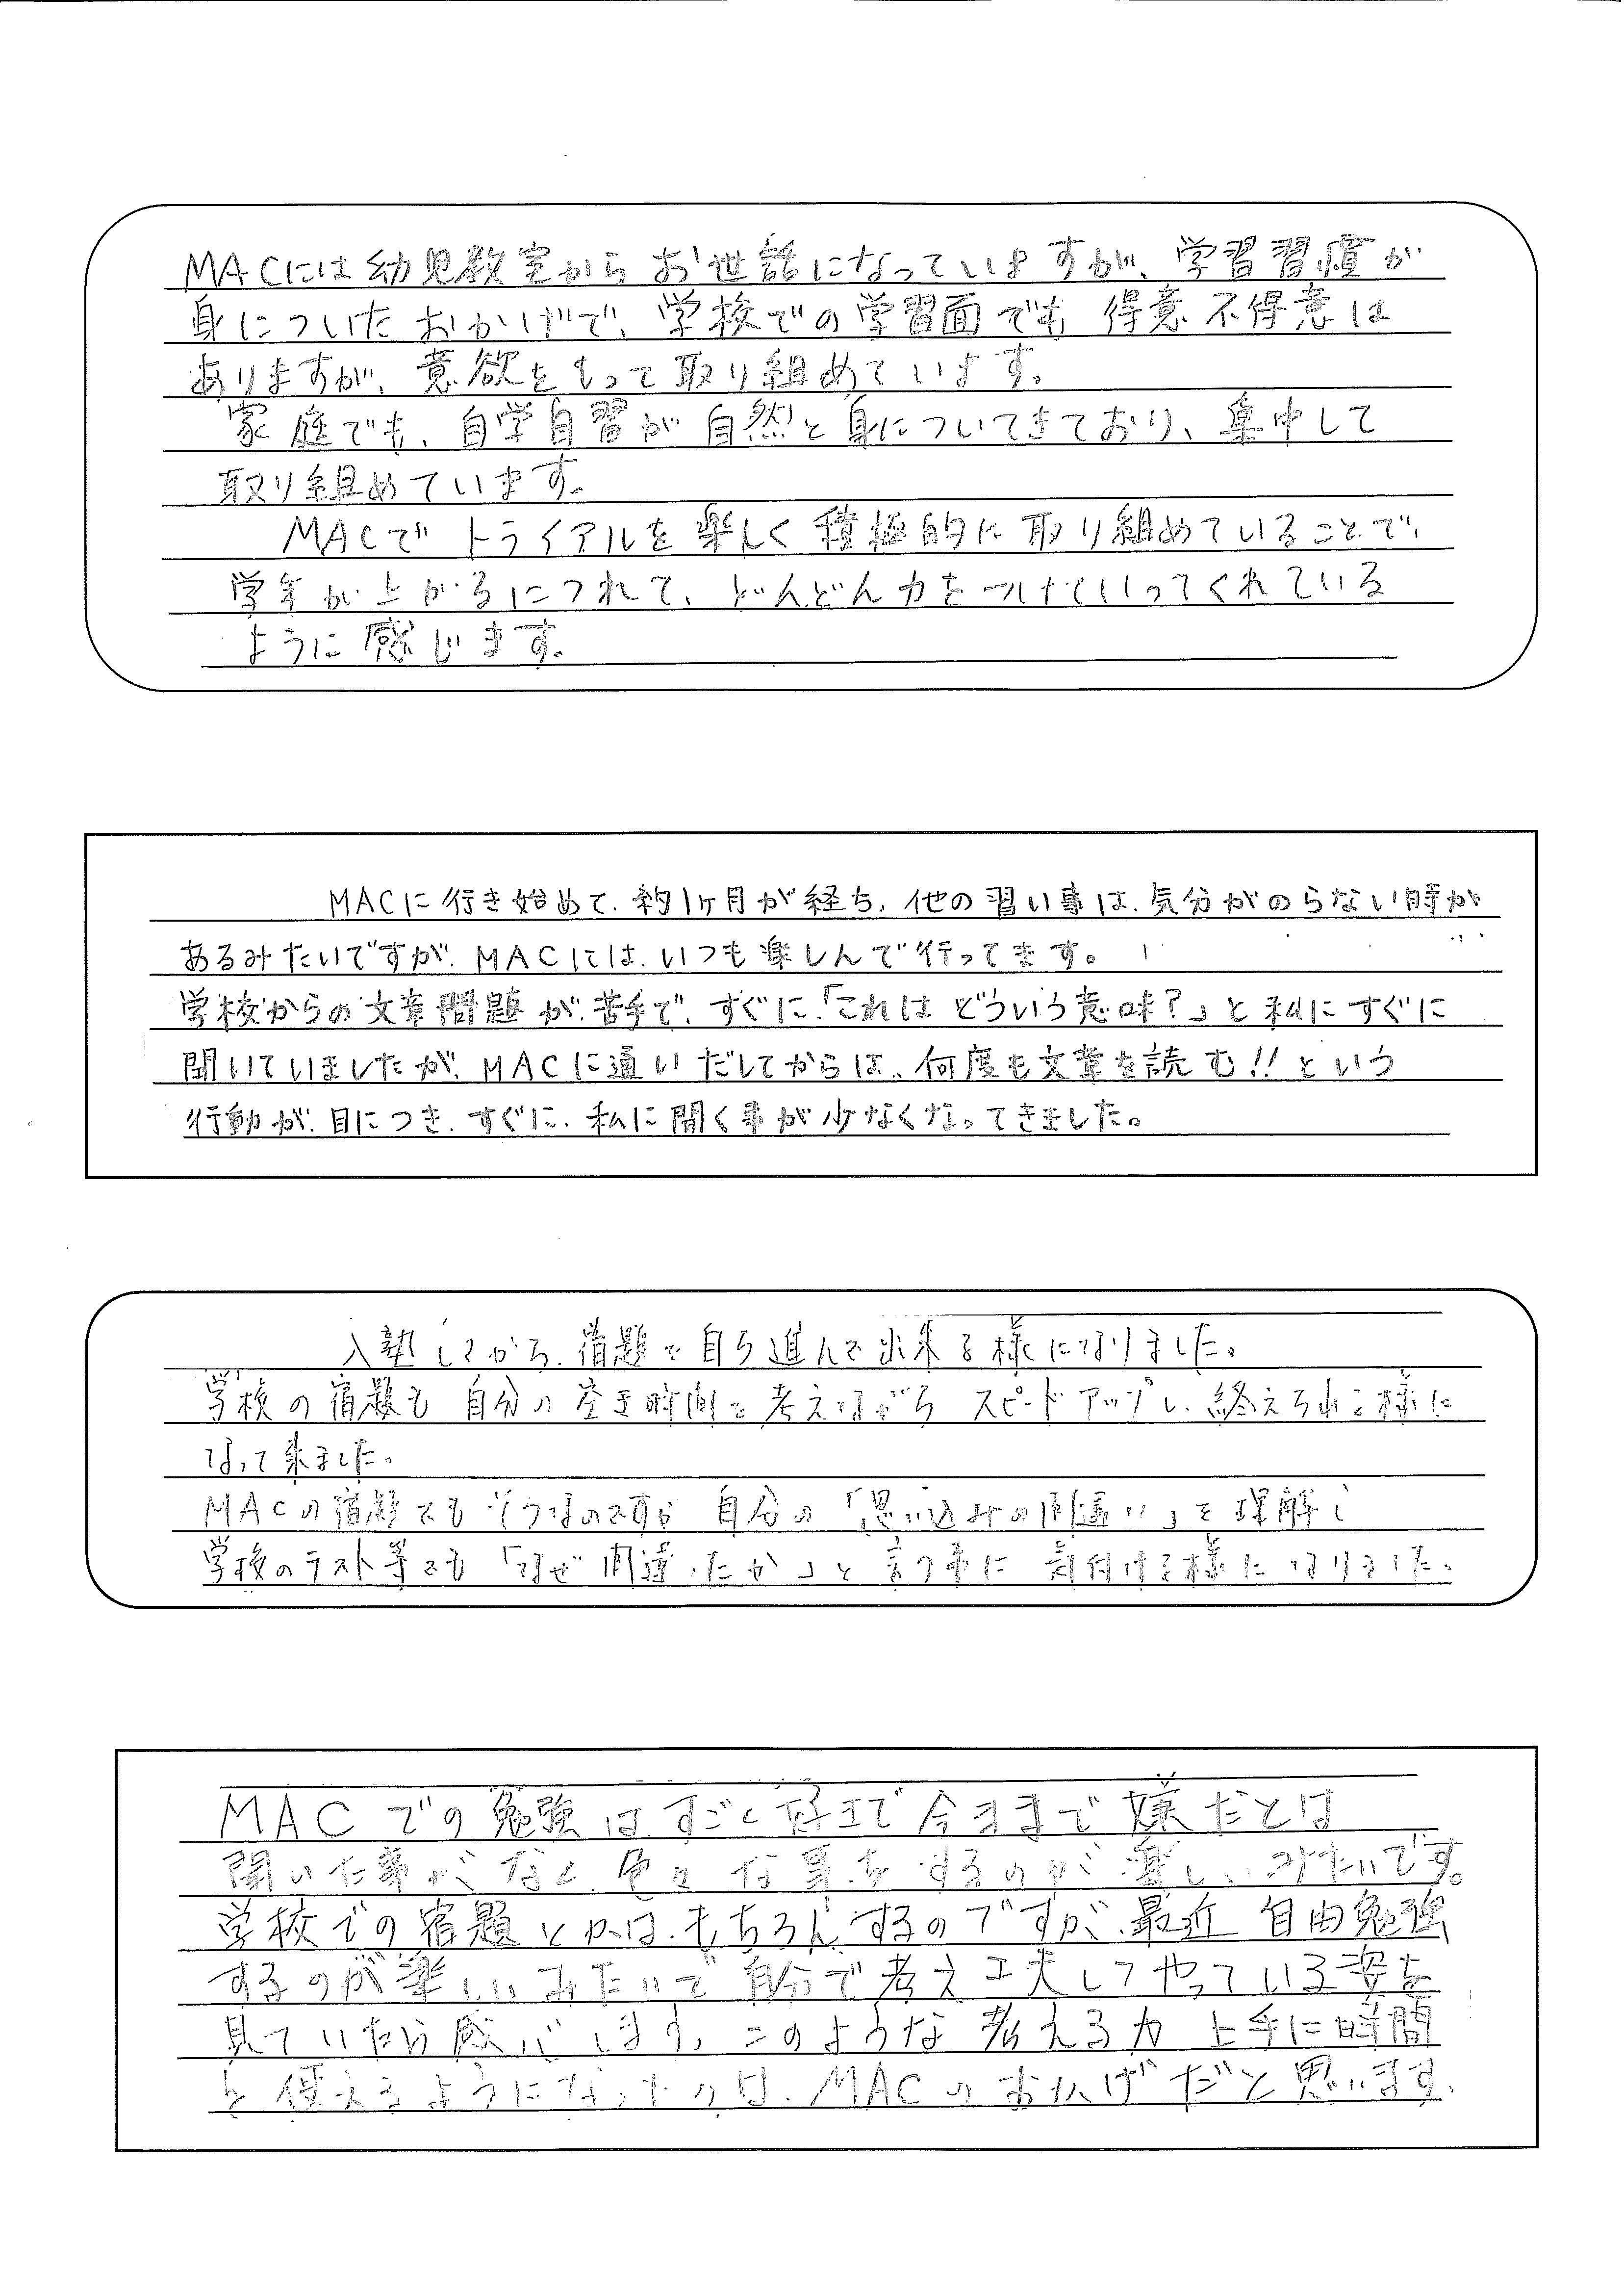 MACには幼児教室からお世話になっていますが、学習習慣が
身についたおかげで、学校での学習面でも得意不得意は
ありますが、意欲をもって取り組めています。
家庭でも、自学自習が自然と身についてきており、集中して
取り組めています。
MACでトライアルを楽しく積極的に取り組めていることで、
学年が上がるにつれて、どんどん力をつけていってくれている
ように感じます。
MACに行き始めて、約1ヶ月が経ち、他の習い事は、気分がのらない時が
あるみたいですが、MACには、いつも楽しんで行ってます。
学校からの文章問題が、苦手で、すぐに、「これはどういう意味?」と私にすぐに
聞いていましたが、MACに通いだしてからは、何度も文章を読む!!という
行動が、目につき、すぐに、私に聞く事が少なくなってきました。
入塾してから、宿題を自ら進んで出来る様になりました。
学校の宿題も自分の空き時間を考えながらスピードアップし、終えられる様に
なって来ました。
MACの宿題でもそうなのですが自分の「思い込みの間違い」を理解し
学校のテスト等でも「なぜ間違ったか」と言う事に気付ける様になりました。
MACでの勉強はすごく好きで今まで嫌だとは
聞いた事がなく、色々な事をするのが楽しいみたいです。
学校での宿題とかは、もちろんするのですが、最近自由勉強
するのが楽しいみたいで自分で考え工夫してやっている姿を
見ていたら感心します。このような考える力上手に時間
を使えるようになったのは、MACのおかげだと思います。